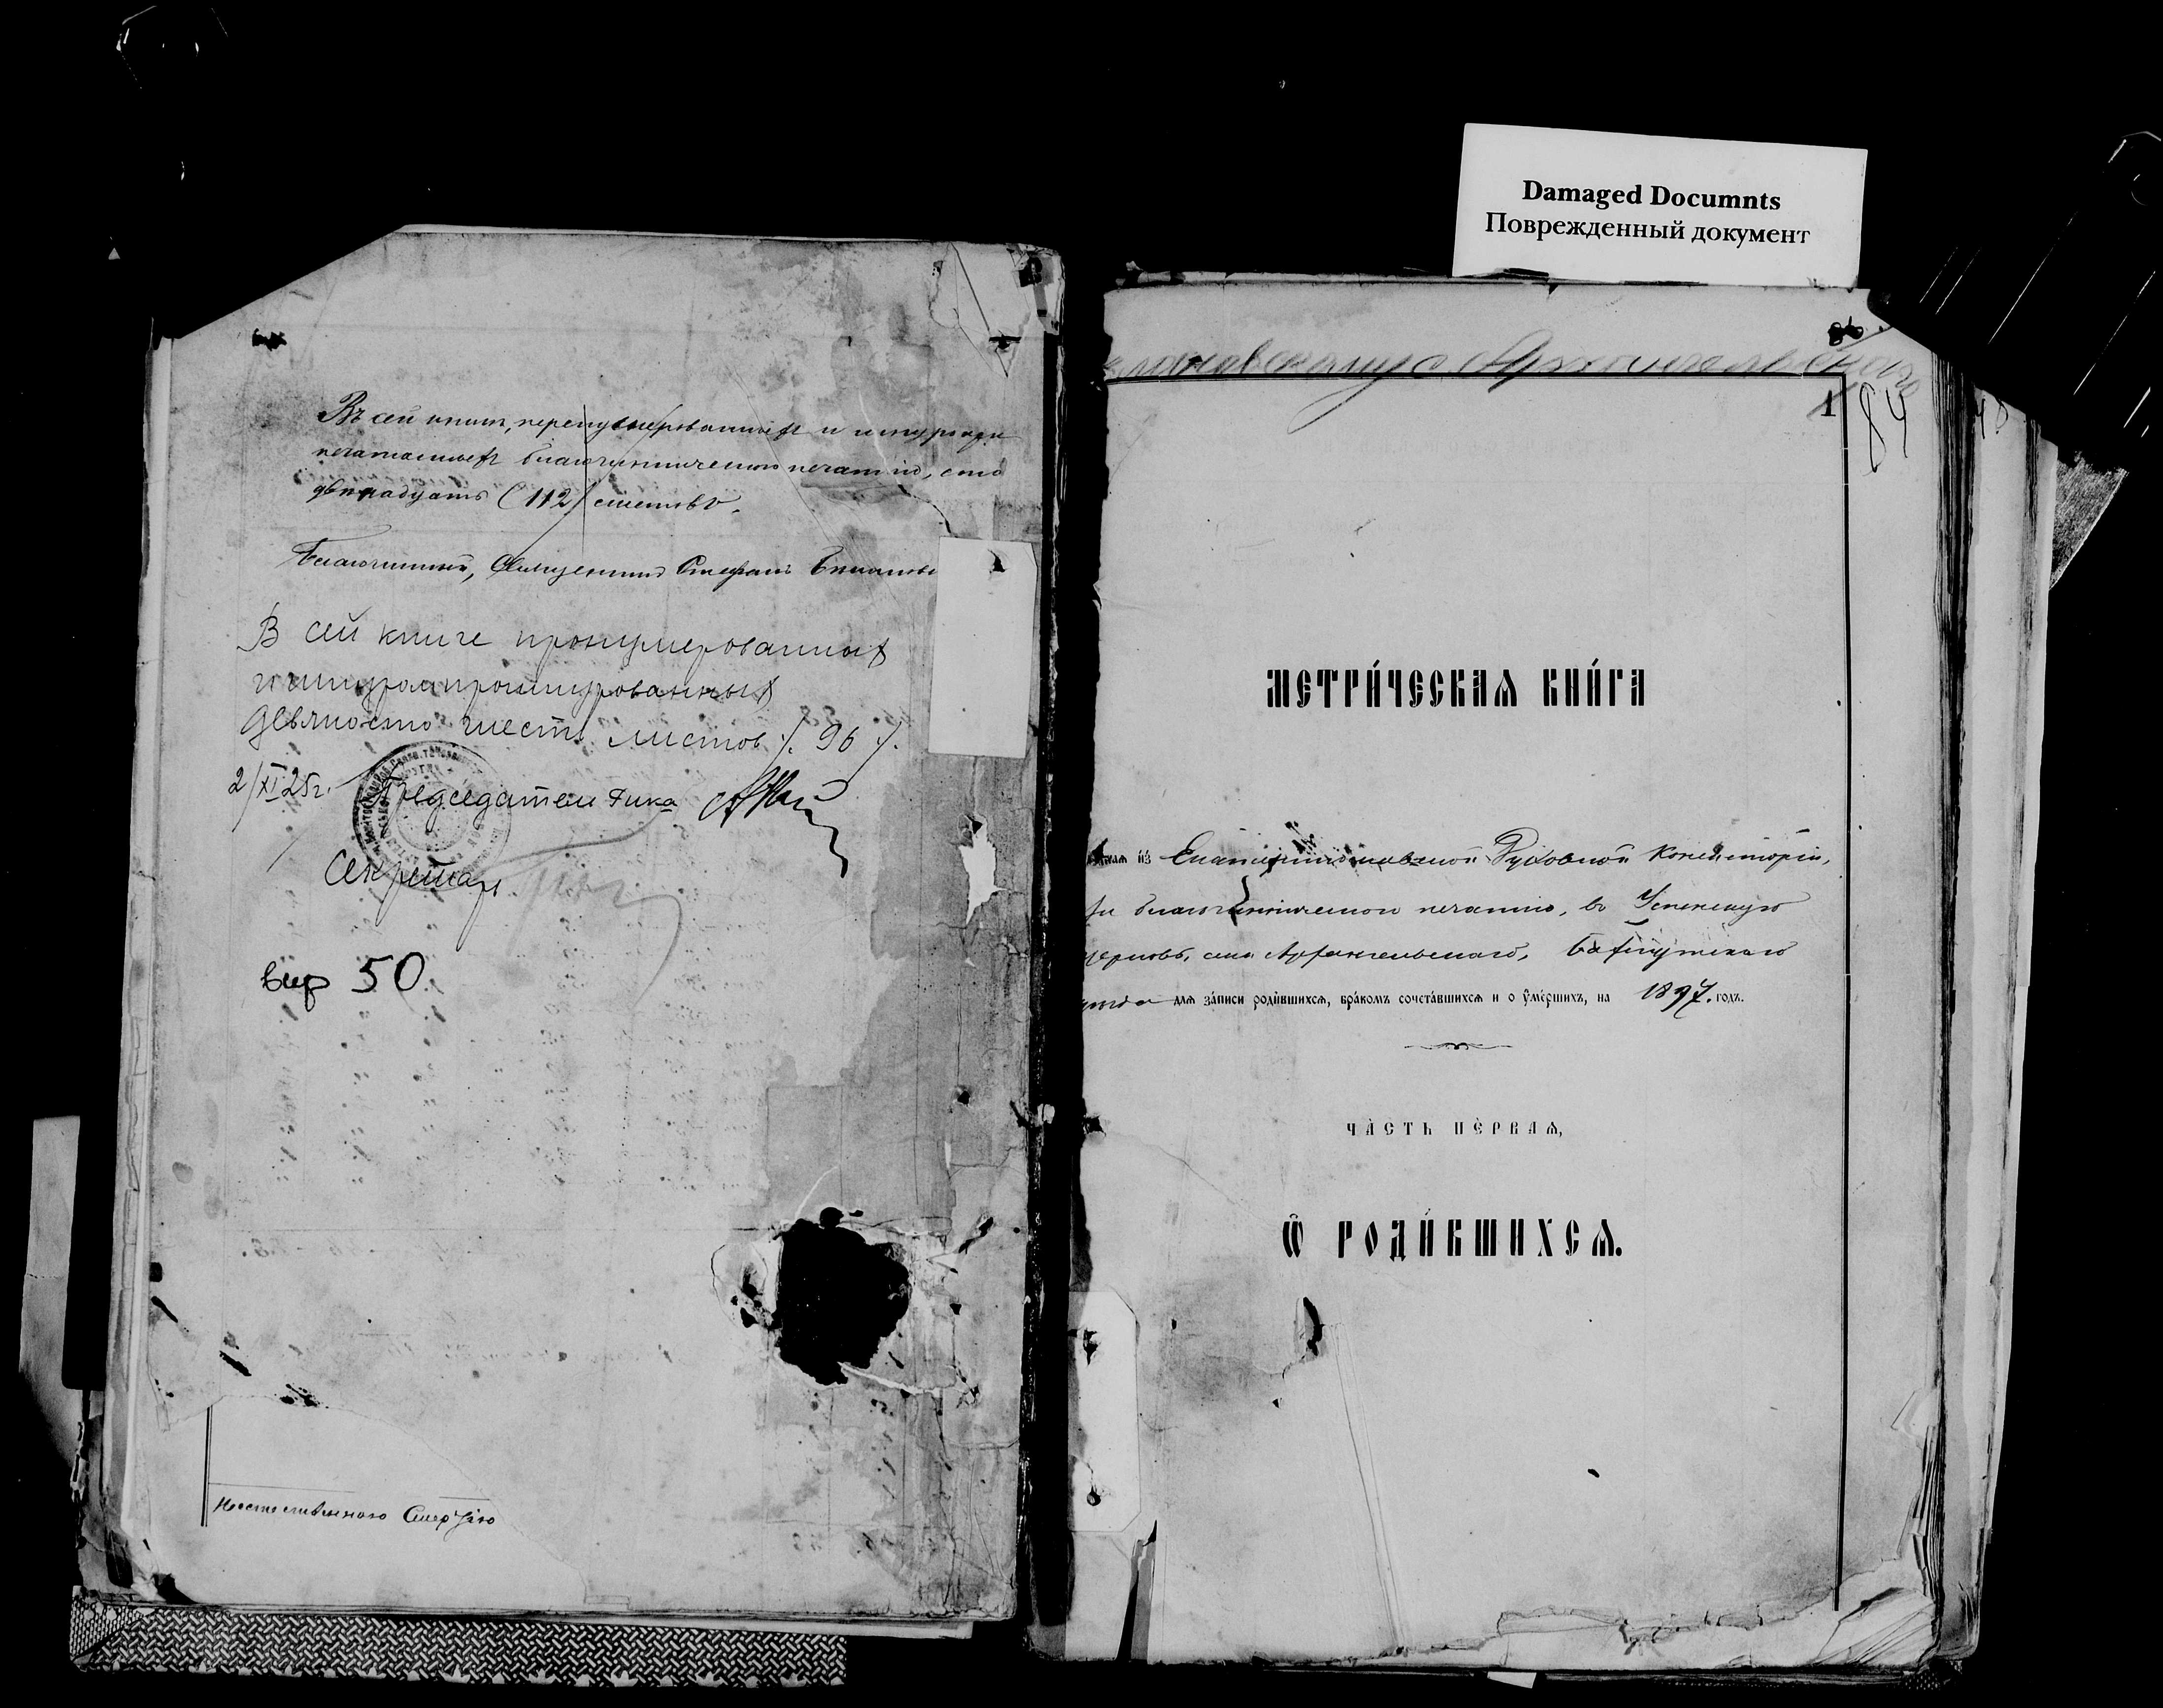 Damaged Documnts
Поврежденный документ
Въ сей книгѣ, перенумерованныхъ и
печатанныхъ благочинническою печатію, сто
двѣнадцать (112) листовъ.
Благочинный, Священникъ Стефанъ
В сей книге пронумерованных
и прошнурованных
девяносто шесть листов /. 96 /.
2/XI 25г. Председатель Рика
Секретарь
вир 50
Неестественною Смертію
84
1
МЕТРИ́ЧЕСКАѦ КНИ́ГА
и҆з̾ Екатеринославской Духовной Консисторіи,
благочинническою печатію, въ Успенскую
церковь, села Архангельскаго, Бахмутскаго
для за́писи роди́вшихсѧ, бра́комъ сочета́вшихсѧ и о ᲂу҆ме́ршихъ, на 1897. годъ.
ЧА́СТЬ ПЕ́РВАѦ,
Ѽ РОДИ́ВШИХСѦ.